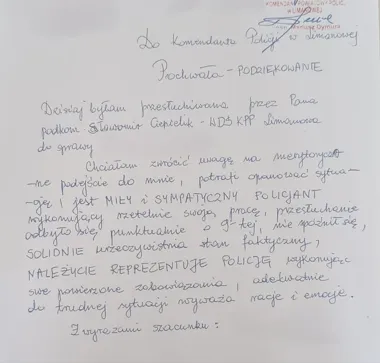 KOMENDANT POWIATOWY POLICJI
w LIMANOWEJ
Do Komendanta Policji w Limanowej
Pochwała - PODZIĘKOWANIE
Dzisiaj byłam przesłuchiwana przez Pana
podkom. Sławomir - WDŚ KPP Limanowa
do sprawy
Chciałam zwrócić uwagę na merytorycz-
-ne podejście do mnie, potrafi opanować sytua-
-cję i jest MIŁY i SYMPATYCZNY POLICJANT
wykonujący rzetelnie swoją pracę, przesłuchanie
odbyło się punktualnie o 9-tej, nie spóźnił się,
SOLIDNIE urzeczywistnia stan faktyczny,
NALEŻYCIE REPREZENTUJE POLICJĘ wykonując
swe powierzone zobowiązania, adekwatnie
do trudnej sytuacji wyraża racje i emocje.
Z wyrazami szacunku: